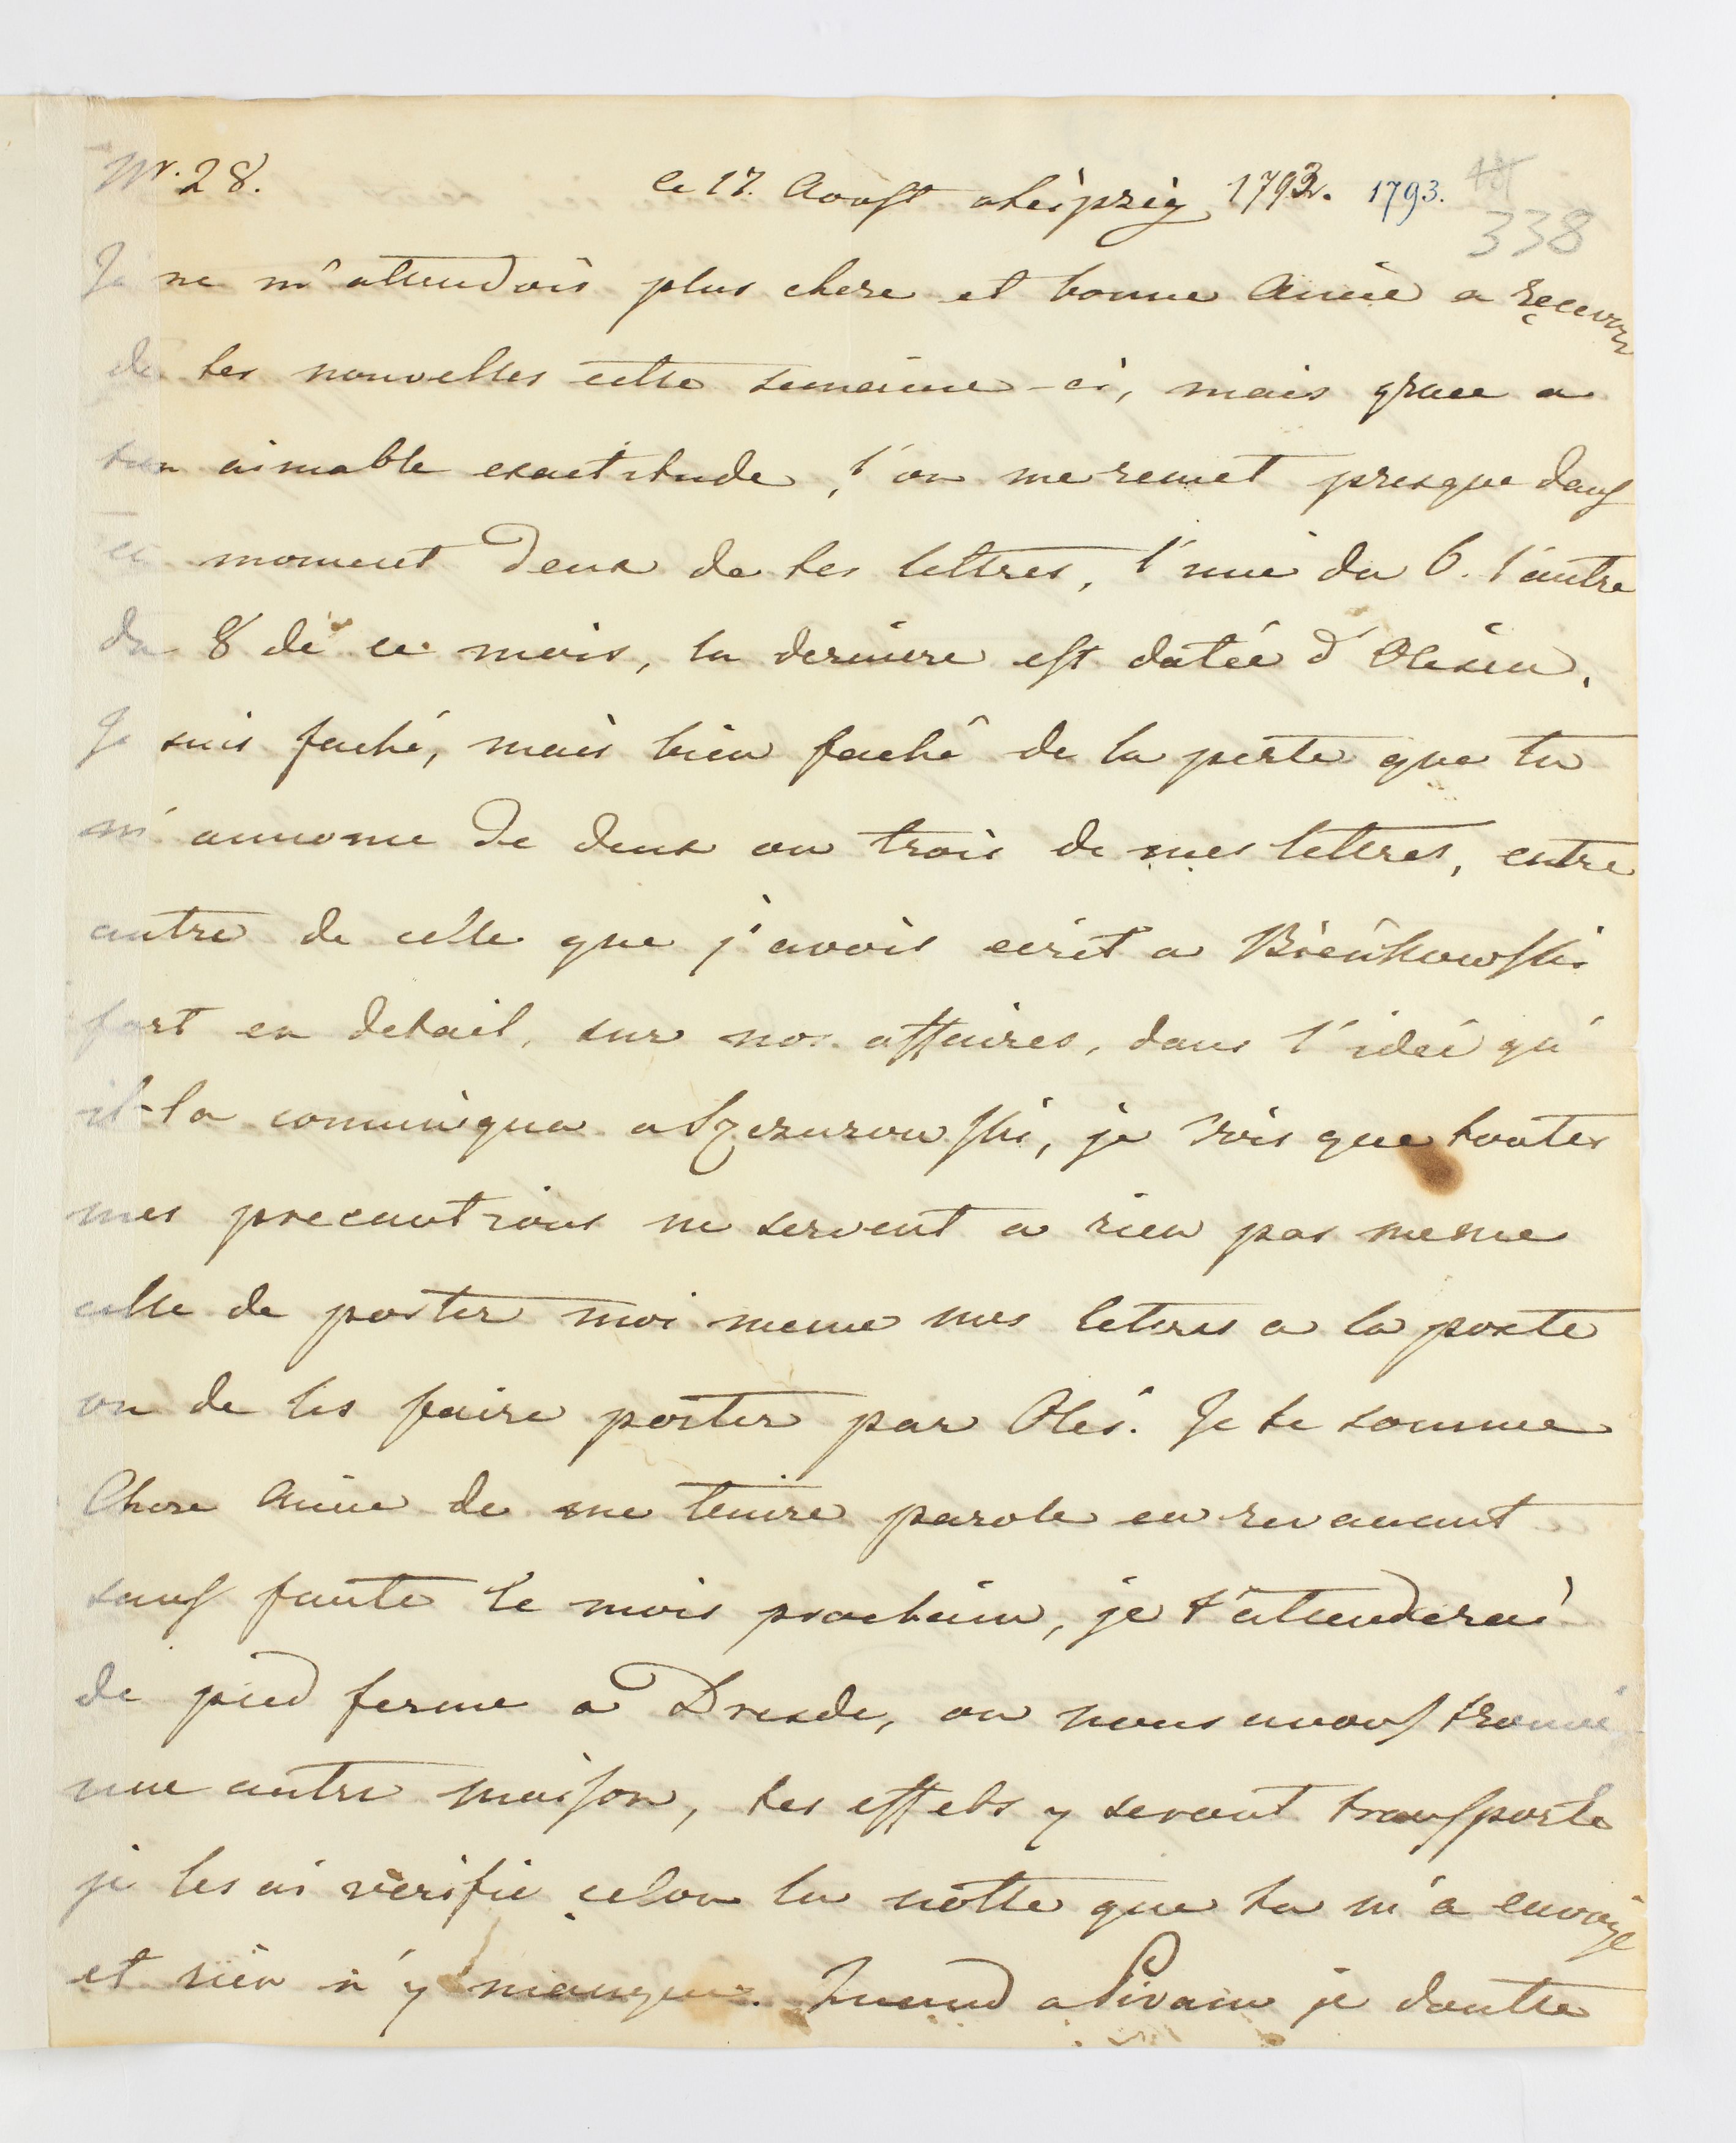 Nr. 28. le 17. Aoust a Leipzig 1792. 1793.
338
Je ne m'attendois plus chere et bonne Amie a recevoir
de tes nouvelles cette semaine-ci, mais grace a
ton aimable exactitude, l'on me remet presque dans
ce moment deux de tes lettres, l'une du 6. l'autre
du 8 de ce mois, la derniere est datée d'Olesin.
Je suis faché, mais bien faché de la perte que tu
m'annonce de deux ou trois de mes lettres, entre
autre de celle que j'avois ecrit a Bieńkowski
fort en detail, sur nos affaires, dans l'idée qu'
il la cominiqua a Szczurowski, je vois que toutes
mes precautions ne servent a rien pas meme
celle de porter moi meme mes letres a la poste
ou de les faire porter par Oleś. Je te somme
Chere Amie de me tenire parole en revenant
sans faute le mois prochain, je t'attenderai
de pied ferme a Dresde, ou nous avons trouvé
une autre maison, tes effets y seront transporte
je les ai verifie celon la notte que tu m'a envoyé
et rien n'y manque. Quand a Pivain je doutte